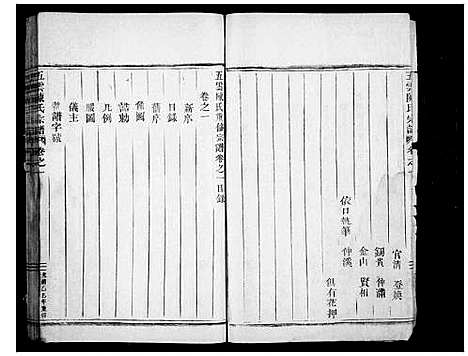 官清 登煥
錫貴 仲滿
金山 賢相
依口執筆 仲溪
俱有花押
五雲陳氏重修宗譜卷之一目錄
卷之一
新序
目錄
舊序
像圖
誥勅
凡例
服圖
儀主
著譜字號
五雲陳氏宗譜
卷之一